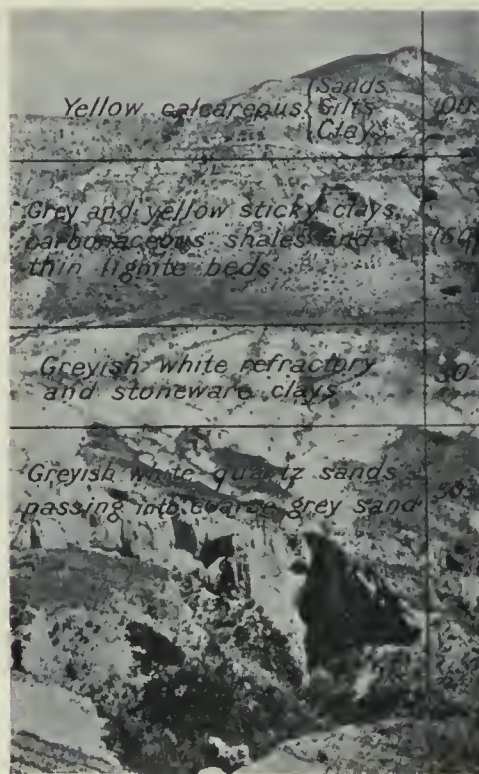 Yellow calcareous { Sands
Silts
Clays
100
Grey and yellow sticky clays,
carbonaceous shales and
thin lignite beds
Greyish white refractory
and stoneware clays
30'
Greyish white quartz sands
passing into coarse grey sand